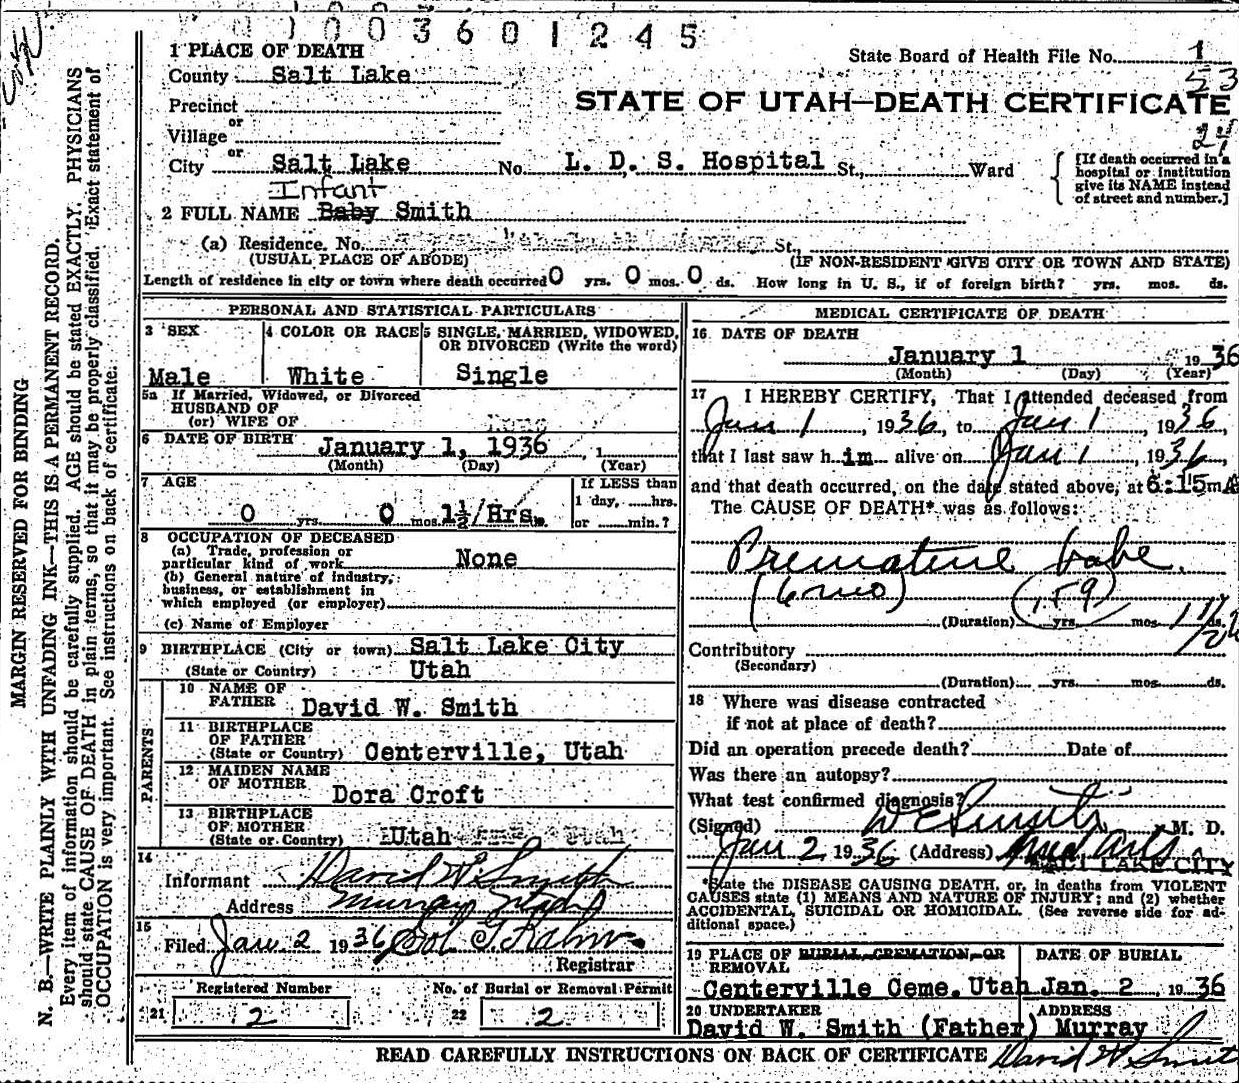 0 0 0 3 6 0 1 2 4 5
1 PLACE OF DEATH
State Board of Health File No. 1
County Salt Lake
53
STATE OF UTAH—DEATH CERTIFICATE
Precinct
or
Village
or
City Salt Lake No. L. D. S. Hospital St., Ward
[If death occurred in a
hospital or institution
give its NAME instead
of street and number.]
Infant
2 FULL NAME Baby Smith
(a) Residence. No. St.,
(USUAL PLACE OF ABODE) (IF NON-RESIDENT GIVE CITY OR TOWN AND STATE)
Length of residence in city or town where death occurred 0 yrs. 0 mos. 0 ds. How long in U. S., if of foreign birth? yrs. mos. ds.
PERSONAL AND STATISTICAL PARTICULARS
3 SEX
Male
4 COLOR OR RACE
White
5 SINGLE, MARRIED, WIDOWED,
OR DIVORCED (Write the word)
Single
5a If Married, Widowed, or Divorced
HUSBAND OF
(or) WIFE OF None
6 DATE OF BIRTH January 1, 1936, 1
(Month) (Day) (Year)
7 AGE
0 yrs. 0 mos. 1½/Hrs.
If LESS than
1 day, hrs.
or min.?
8 OCCUPATION OF DECEASED
(a) Trade, profession or
particular kind of work None
(b) General nature of industry,
business, or establishment in
which employed (or employer)
(c) Name of Employer
9 BIRTHPLACE (City or town) Salt Lake City
(State or Country) Utah
PARENTS
10 NAME OF
FATHER David W. Smith
11 BIRTHPLACE
OF FATHER
(State or Country) Centerville, Utah
12 MAIDEN NAME
OF MOTHER
Dora Croft
13 BIRTHPLACE
OF MOTHER
(State or Country) Utah
14
Informant David W Smith
Address Murray Utah
15
Filed Jan 2 1936
Registrar
Registered Number
21 2
No. of Burial or Removal Permit
22 2
MEDICAL CERTIFICATE OF DEATH
16 DATE OF DEATH
January 1 1936
(Month) (Day) (Year)
17 I HEREBY CERTIFY, That I attended deceased from
Jan 1, 1936, to Jan 1, 1936,
that I last saw h im alive on Jan 1, 1936,
and that death occurred, on the date stated above, at 6:15 m A
The CAUSE OF DEATH* was as follows:
Premature babe.
(6 mo) (159)
(Duration) yrs. mos. ds.
Contributory
(Secondary)
(Duration) yrs. mos. ds.
18 Where was disease contracted
if not at place of death?
Did an operation precede death? Date of
Was there an autopsy?
What test confirmed diagnosis?
(Signed) M. D.
Jan 2 1936 (Address) Med Arts
SALT LAKE CITY
*State the DISEASE CAUSING DEATH, or, in deaths from VIOLENT
CAUSES state (1) MEANS AND NATURE OF INJURY; and (2) whether
ACCIDENTAL, SUICIDAL OR HOMICIDAL. (See reverse side for ad-
ditional space.)
19 PLACE OF BURIAL, CREMATION, OR
REMOVAL
Centerville Ceme. Utah
DATE OF BURIAL
Jan. 2, 1936
20 UNDERTAKER
David W. Smith (Father)
ADDRESS
Murray
READ CAREFULLY INSTRUCTIONS ON BACK OF CERTIFICATE David W Smith
MARGIN RESERVED FOR BINDING
N. B.—WRITE PLAINLY WITH UNFADING INK—THIS IS A PERMANENT RECORD.
Every item of information should be carefully supplied. AGE should be stated EXACTLY. PHYSICIANS
should state CAUSE OF DEATH in plain terms, so that it may be properly classified. Exact statement of
OCCUPATION is very important. See instructions on back of certificate.